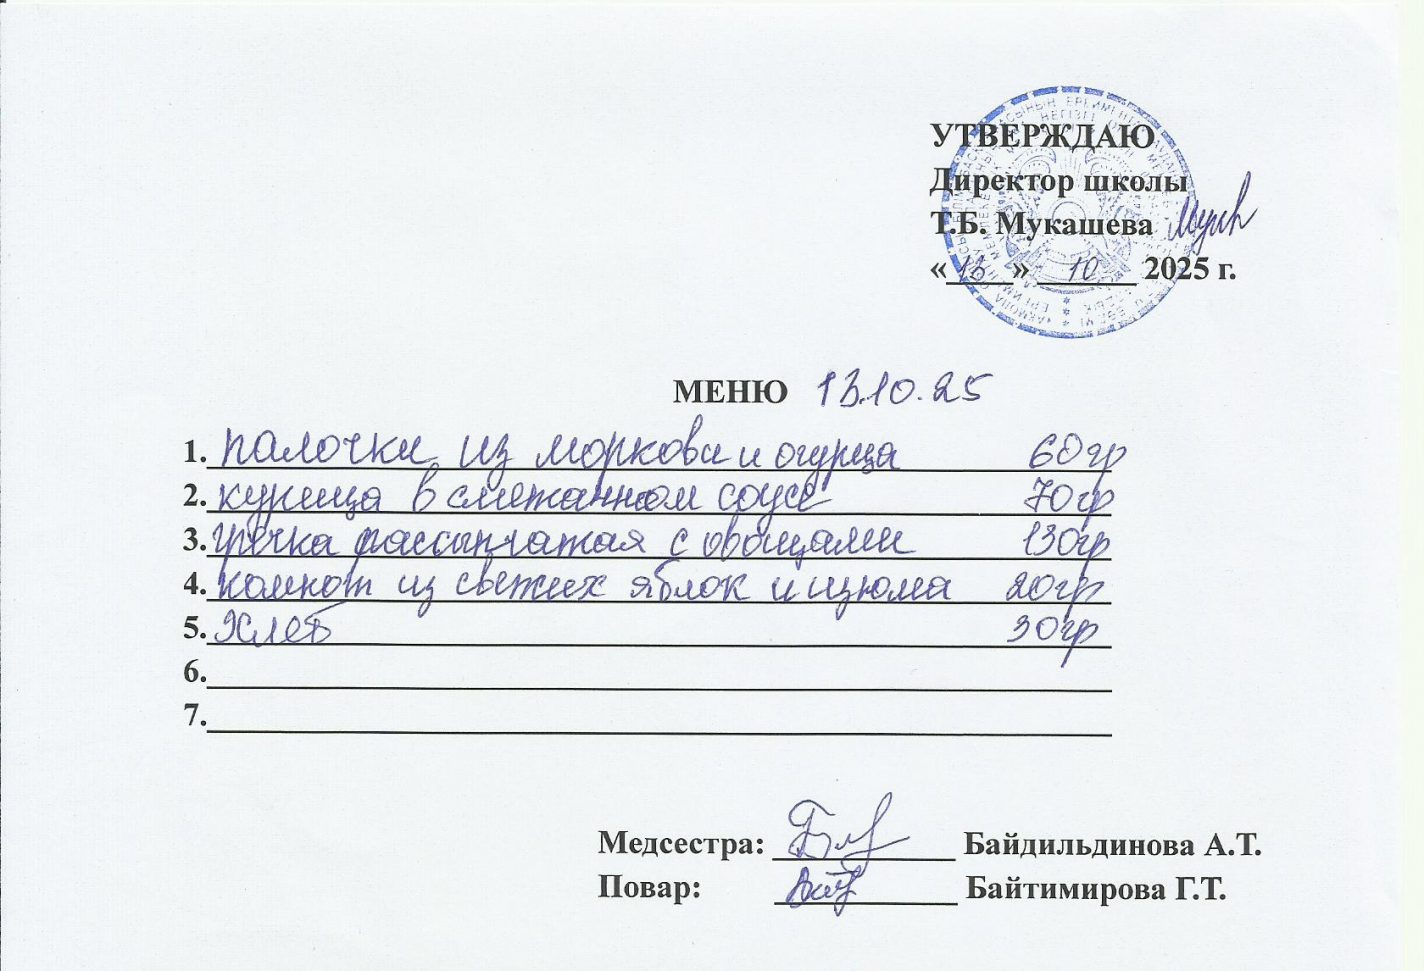 УТВЕРЖДАЮ
Директор школы
Т.Б. Мукашева
«13» 10 2025 г.
МЕНЮ 13.10.25
1. палочки из моркови и огурца 60гр
2. курица в сметанном соусе 70гр
3. гречка рассыпчатая с овощами 130гр
4. компот из свежих яблок и изюма 20гр
5. Хлеб 30гр
6.
7.
Медсестра: Байдильдинова А.Т.
Повар: Байтимирова Г.Т.